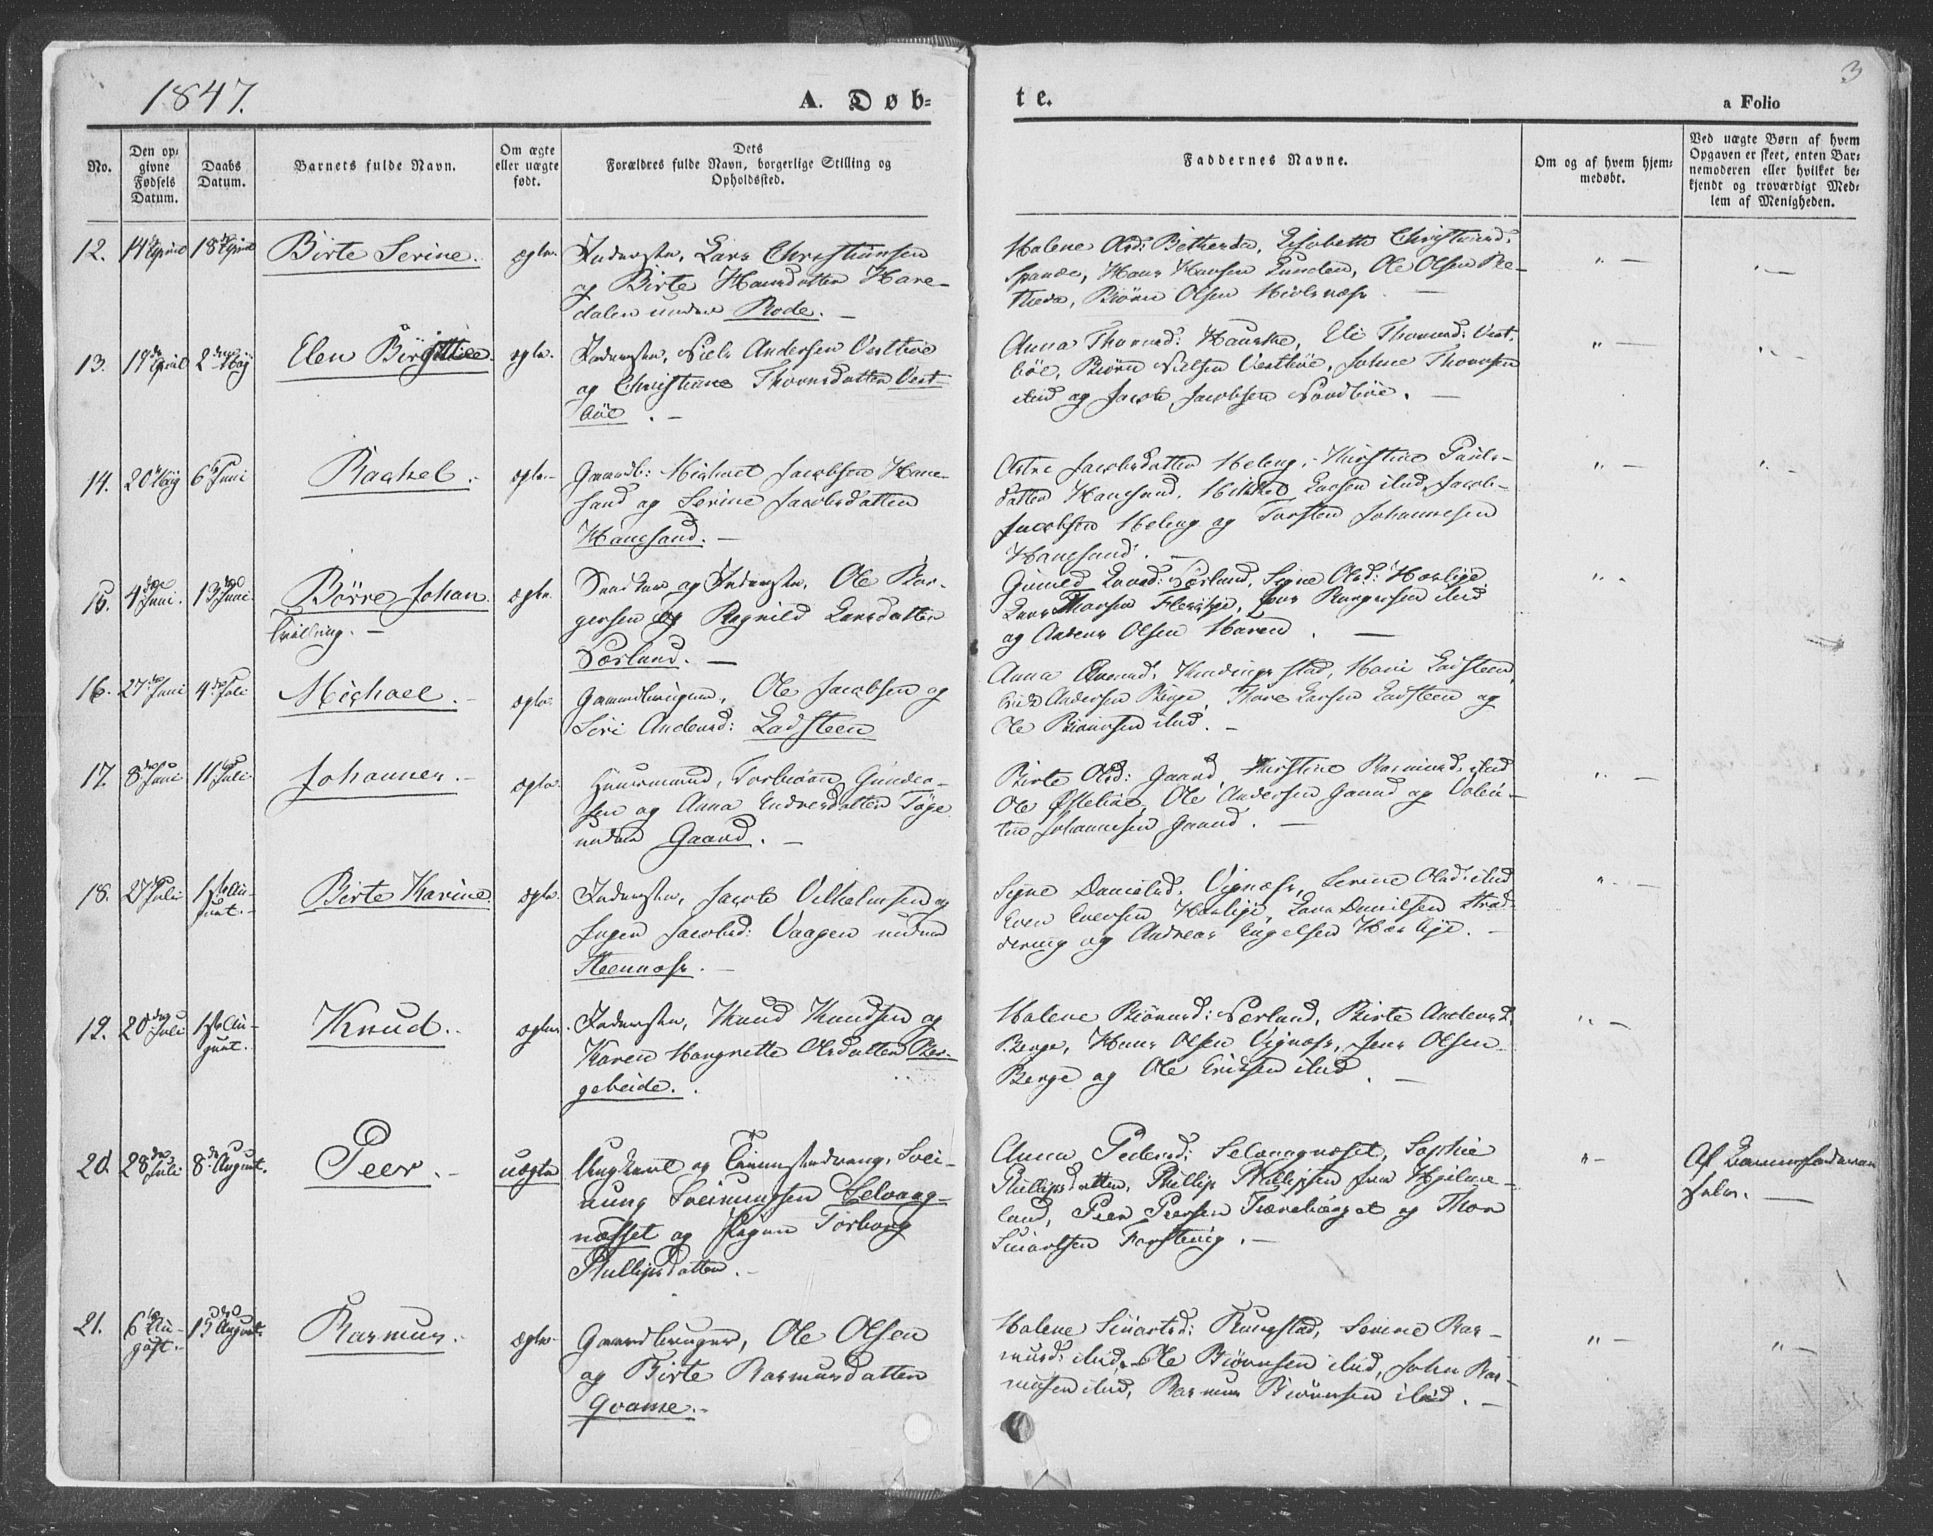 1847.
A. Døb-
te.
3
a Folio
No.
Den op-
givne
Fødsels
Datum.
Daabs
Datum.
Barnets fulde Navn.
Om ægte
eller uægte
født.
Dets
Forældres fulde Navn, borgerlige Stilling og
Opholdssted.
Faddernes Navne.
Om og af hvem hjem-
medøbt.
Ved uægte Børn af hvem
Opgaven er skeet, enten Bar-
nemoderen eller hvilket be-
kjendt og troværdigt Med-
lem af Menigheden.
12. 14 April 18 April Birte Serine. ægte.
Inderster, Lars Christiansen
og Birte Hansdatter Hare-
dalen under Rode. —
Malene Olsd: Elisabeth Christiansd:
Hans Hansen Lunden, Ole Olsen Re-
Biørn Olsen
13. 19de April 2den May Elen Birgitte. ægte.
Inderster, Niels Andersen Vestbøe
og Christiane Thomsdatter Vest-
bøe. —
Anna Thomsd: Hauske, Eli Thomsd: Vest-
bøe, Biørn Nielsen Vestbøe, Johne Thomsen
ibid og Jacob Jacobsen Nordbøe. —
14. 20 May 6 Juni Rachel. ægte.
Gaardb: Michael Jacobsen Hane-
sand og Serine Jacobsdatter
Hanesand. —
Jacobsdatter Meling, Kirstine Pauls-
datter Hanesand, Mikkel Larsen ibid, Jacob
Jacobsen Meling og Torsten Johannesen
Hanesand. —
15. 4 Juni. 13 Juni. Børre Johan
Tvilling. —
ægte
og Inderster, Ole Bør-
gersen og Ragnild Larsdatter
Særland. —
Gunild Larsd: Særland, Signe Olsd: Haslige,
Lars Hansen Jens Børgersen ibid
og Anders Olsen Haren. —
16. 27de Juni 4de Juli Michael. — ægte.
Gaardbruger, Ole Jacobsen og
Siri Andersd: Ladsteen
Anna Mari Ladsteen,
Andersen Berge, Thore Larsen Ladsteen og
Ole Biørnsen ibid. —
17. 8 Juni 11 Juli Johannes. — ægte.
Huusmand, Torbiørn Gunder-
sen og Anna Endresdatter Tøge
under Gaard. —
Birte Olsd: Gaard, Kirstine Rasmusd: ibid
Ole Østebøe, Ole Andersen Gaard og Valen-
tin Johannesen Gaard. —
18. 27 Juli 1ste Au-
gust. Birte Karine. ægte.
Inderster, Jacob Vilhelmsen og
Inger Jacobsd: Vaagen under
Steennæss. —
Signe Danielsd: Vignæss, Serine Olsd: ibid
Even Evensen Haslige, Lars Danielsen
og Andreas Engelsen Haslige. —
19. 20de Juli 1ste Au-
gust. Knud. ægte.
Inderster, Knud Knudsen og
Karen Margrette Olsdatter Ber-
geheide.
Malene Biørnsd: Særland, Birte Andersd:
Berge, Hans Olsen Vignæss, Jens Olsen
Berge og Ole Eriksen ibid. —
20. 28de Juli 8de August. Peer. — uægte
Ungkarl og Tienestedreng, Svei-
nung Sveinungsen Selvaag-
næsset og Pigen Torborg
Phillipsdatter. —
Anna Pedersd: Selvaagnæset, Sophie
Phillipsdatter, Phillip Phillipsen fra Hielme-
land, Peer Peersen og Thor
Sivartsen
Af Barnefaderen
selv. —
21. 6 Au-
gust. 15de August. Rasmus. ægte.
Gaardbruger, Ole Olsen
og Birte Rasmusdatter
Qvame. —
Malene Sivartsd: Ringstad, Serine Ras-
musd: ibid, Ole Biørnsen ibid, John Ras-
musen ibid, Rasmus Biørnsen ibid. —